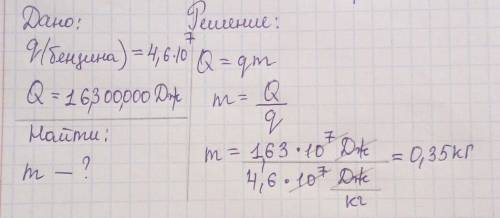 Дано:
q(бензина) = 4,6·10⁷
Q = 16,300,000 Дж
Найти:
m — ?
Решение:
Q = qm
m = Q/q
m = 1,63 · 10⁷ Дж / 4,6 · 10⁷ Дж/кг = 0,35 кг